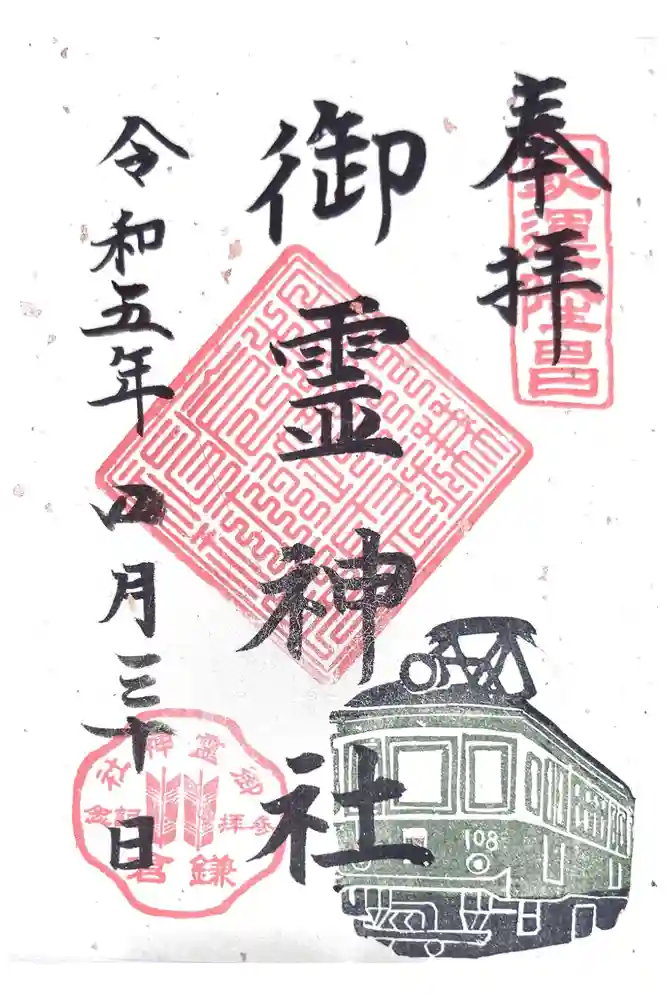 奉拝
御霊神社
令和五年 四月三十日
御霊神社
参拝
記念
鎌倉
108